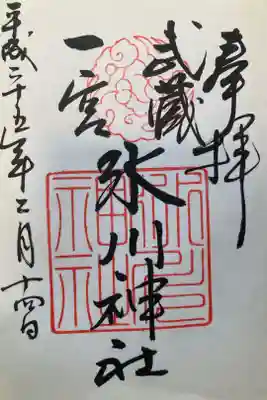 奉拝
武蔵
一宮
氷川神社
平成二十五年二月十四日